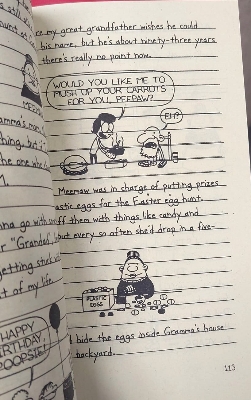 a still
MEEMAW
Gramma's mom,
thing, but i
he one who i
M.
nna go with
r "Grandad",
getting stuck w
t of my life.
HAPPY
BIRTHDAY,
POOPSIE!
my great grandfather wishes he could
his name, but he's about ninety-three years
there's really no point now.
WOULD YOU LIKE ME TO
MUSH UP YOUR CARROTS
FOR YOU, PEEPAW?
EH?
Meemaw was in charge of putting prizes
plastic eggs for the Easter egg hunt.
ff them with things like candy and
but every so often she'd drop in a five-
PLASTIC
EGGS
hide the eggs inside Gramma's house
backyard.
113